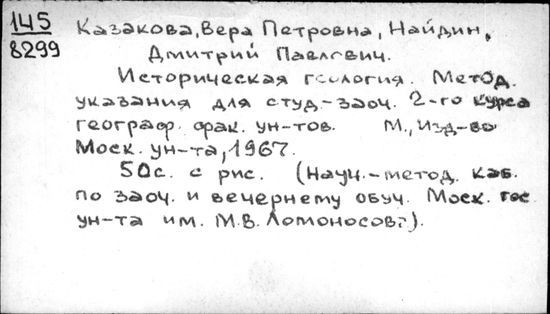 145
8299
Казакова, Вера Петровна, Найдин,
Дмитрий Павлович.
Историческая геология. Метод.
указания для студ-заоч. 2-го курса
географ. фак. ун-тов. М., Изд-во
Моск. ун-та, 1967.
50с. с рис. (Науч.-метод. каб.
по заоч. и вечернему обуч. Моск. гос
ун-та им. М.В. Ломоносова).